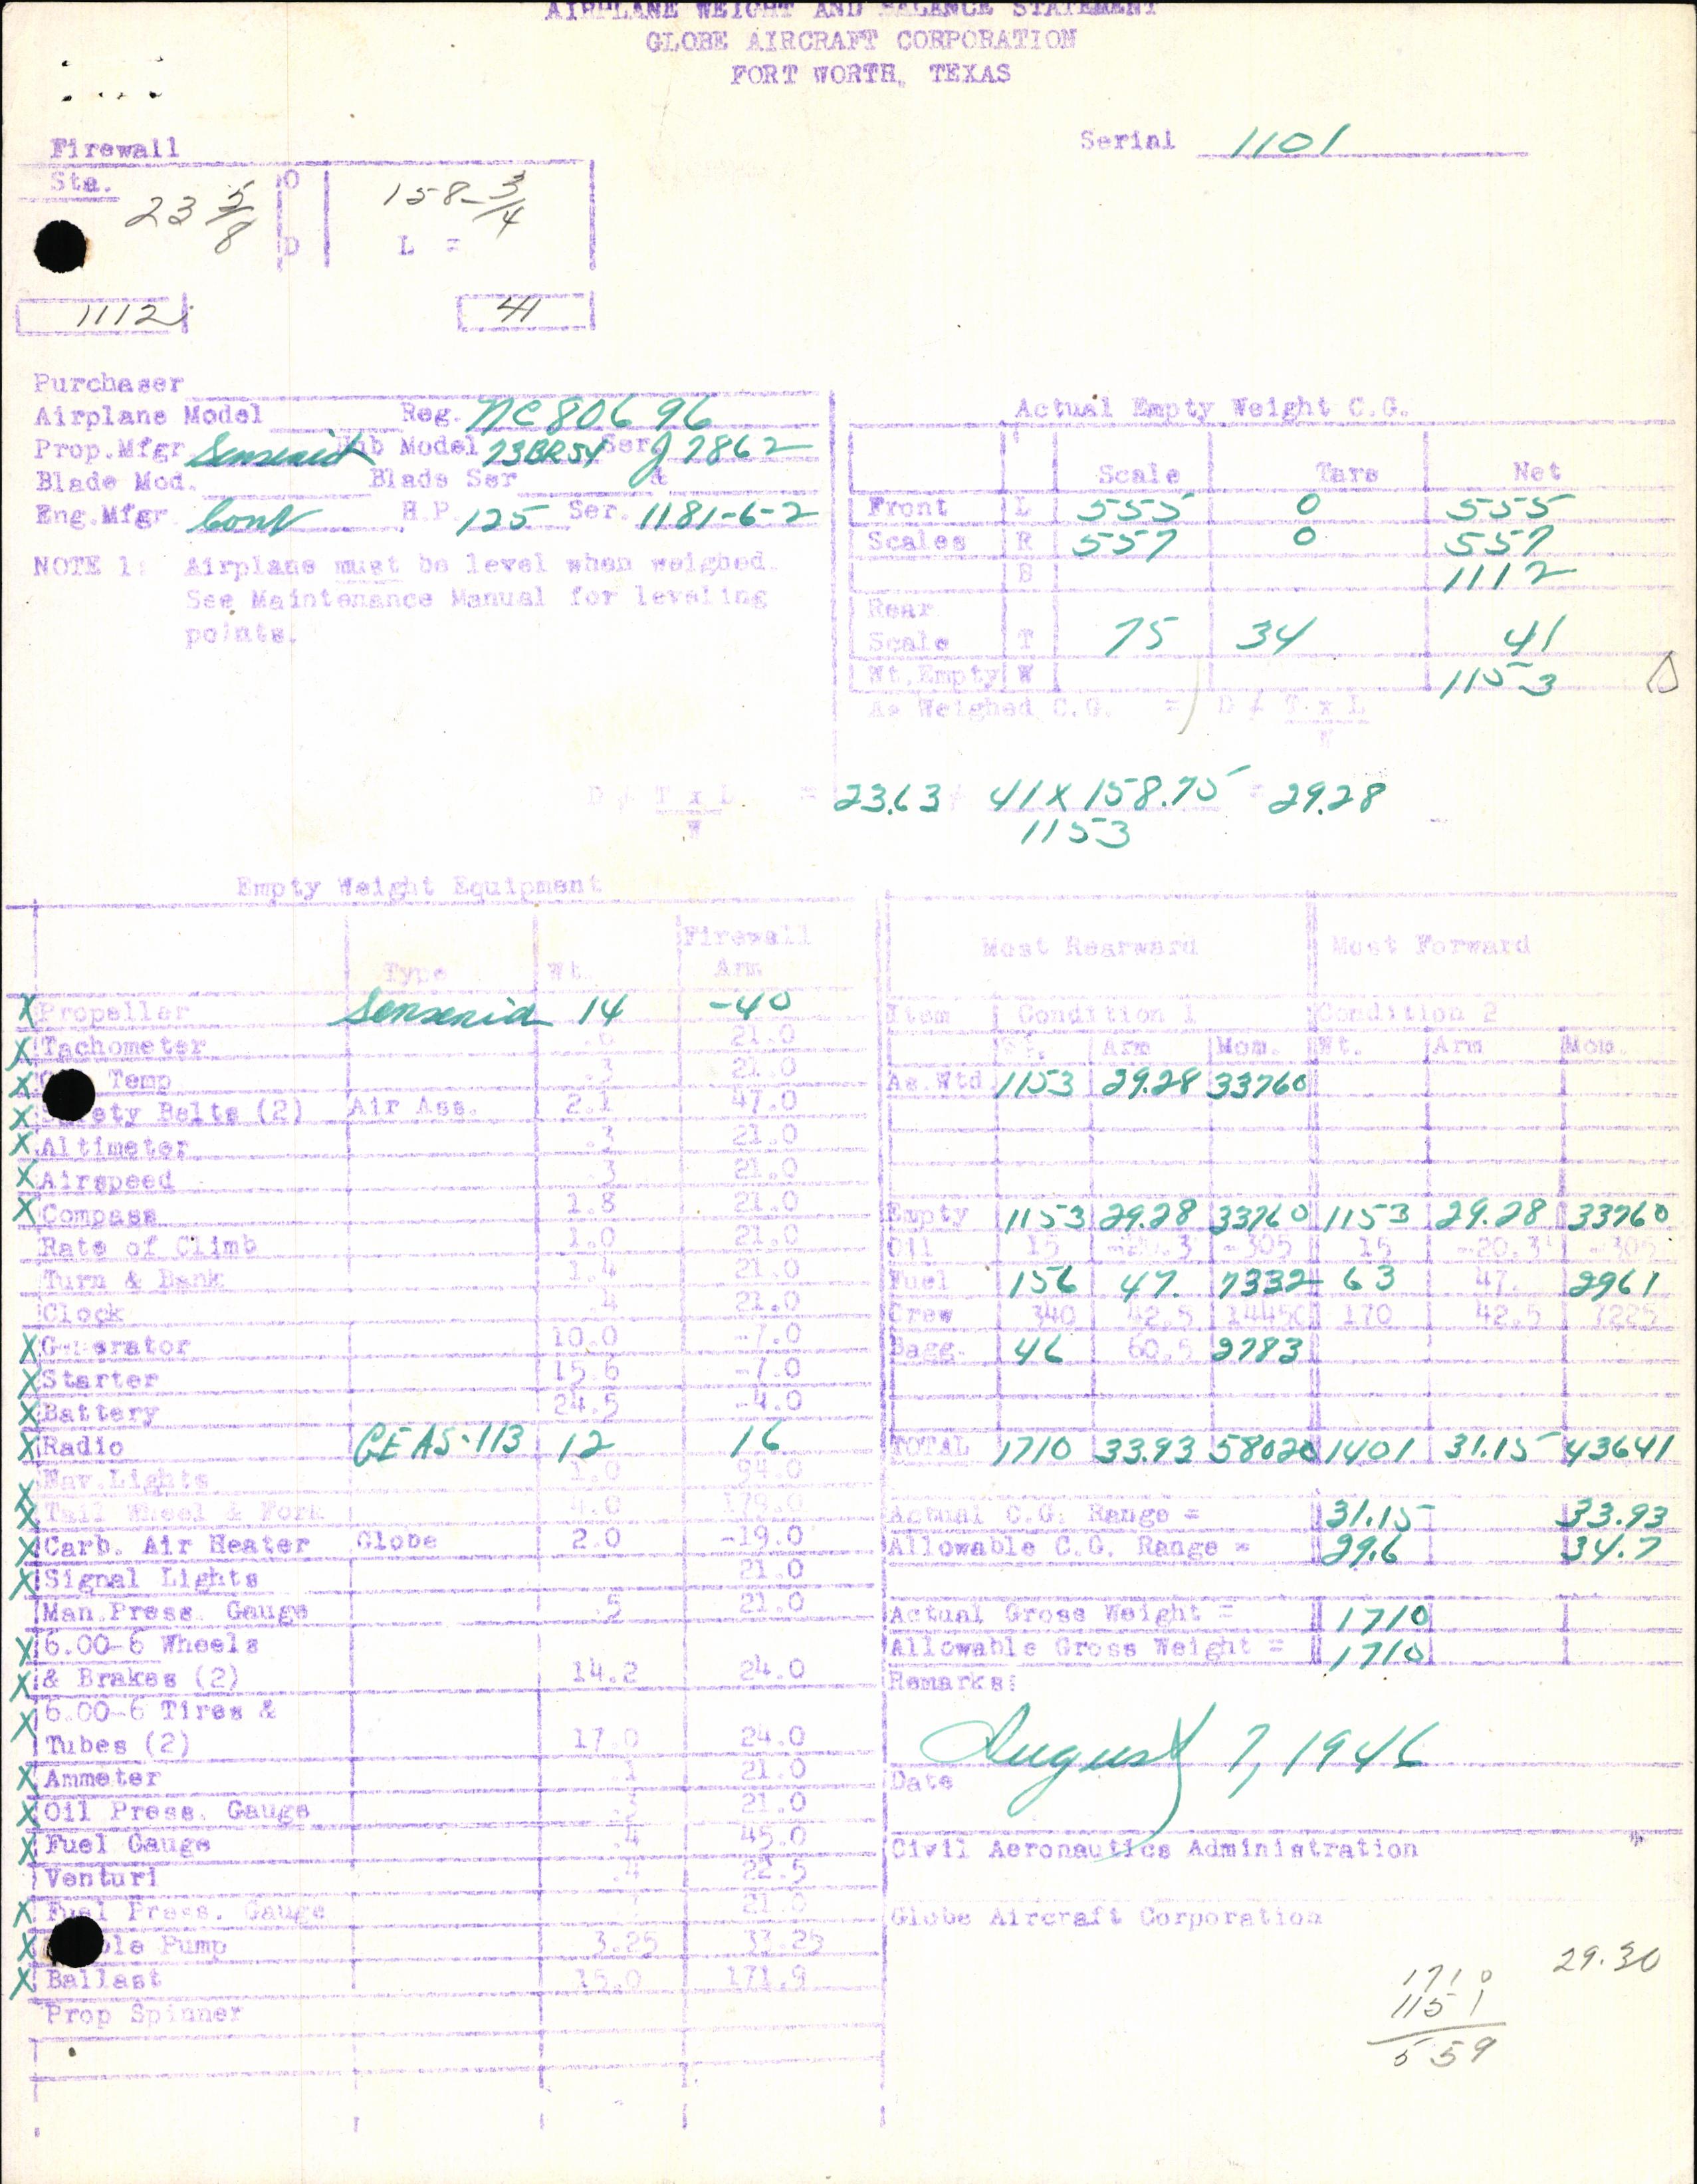 AIRPLANE WEIGHT AND BALANCE STATEMENT
GLOBE AIRCRAFT CORPORATION
FORT WORTH, TEXAS
Serial 1101
Firewall
Sta. 0
23 5/8 158-3/4
D L =
1112 41
Purchaser
Airplane Model Reg. NC80696
Prop.Mfgr Sensenich Hub Model 73BR54 Ser. J 7862
Blade Mod. Blade Ser &
Eng.Mfgr. Cont H.P. 125 Ser. 1181-6-2
NOTE 1: Airplane must be level when weighed.
See Maintenance Manual for leveling
points.
Actual Empty Weight C.G.
Scale Tare Net
Front L 555 0 555
Scales R 557 0 557
B 1112
Rear
Scale T 75 34 41
Wt.Empty W 1153
As Weighed C.G. = D ≠ T x L
W
D ≠ T x L = 23.63 ≠ 41 X 158.75 = 29.28
W 1153
Empty Weight Equipment
Type Wt. Firewall Arm
X Propeller Sensenich 14 -40
X Tachometer .6 21.0
X Temp .3 21.0
X Safety Belts (2) Air Ass. 2.1 47.0
X Altimeter .3 21.0
X Airspeed .3 21.0
X Compass 1.8 21.0
Rate of Climb 1.0 21.0
Turn & Bank 1.4 21.0
Clock .4 21.0
X Generator 10.0 -7.0
X Starter 15.6 -7.0
X Battery 24.5 -4.0
X Radio GE AS-113 12 16
X Nav.Lights 1.0 94.0
X Tail Wheel & Fork 4.0 179.0
X Carb. Air Heater Globe 2.0 -19.0
X Signal Lights 21.0
Man.Press. Gauge .5 21.0
X 6.00-6 Wheels
X & Brakes (2) 14.2 24.0
X 6.00-6 Tires &
Tubes (2) 17.0 24.0
X Ammeter .1 21.0
X Oil Press. Gauge .3 21.0
X Fuel Gauge .4 45.0
Venturi .4 22.5
X Fuel Press. Gauge 21.0
X Pump 3.25 33.25
X Ballast 15.0 171.9
Prop Spinner
Most Rearward Most Forward
Item Condition 1 Condition 2
Wt. Arm Mom. Wt. Arm Mom.
As.Wtd. 1153 29.28 33760
Empty 1153 29.28 33760 1153 29.28 33760
Oil 15 -20.3 -305 15 -20.3 -305
Fuel 156 47. 7332 63 47. 2961
Crew 340 42.5 14450 170 42.5 7225
Bagg. 46 60.5 2783
TOTAL 1710 33.93 58020 1401 31.15 43641
Actual C.G. Range = 31.15 33.93
Allowable C.G. Range = 29.6 34.7
Actual Gross Weight = 1710
Allowable Gross Weight = 1710
Remarks:
August 7, 1946
Date
Civil Aeronautics Administration
Globe Aircraft Corporation
29.30
1710
1151
559